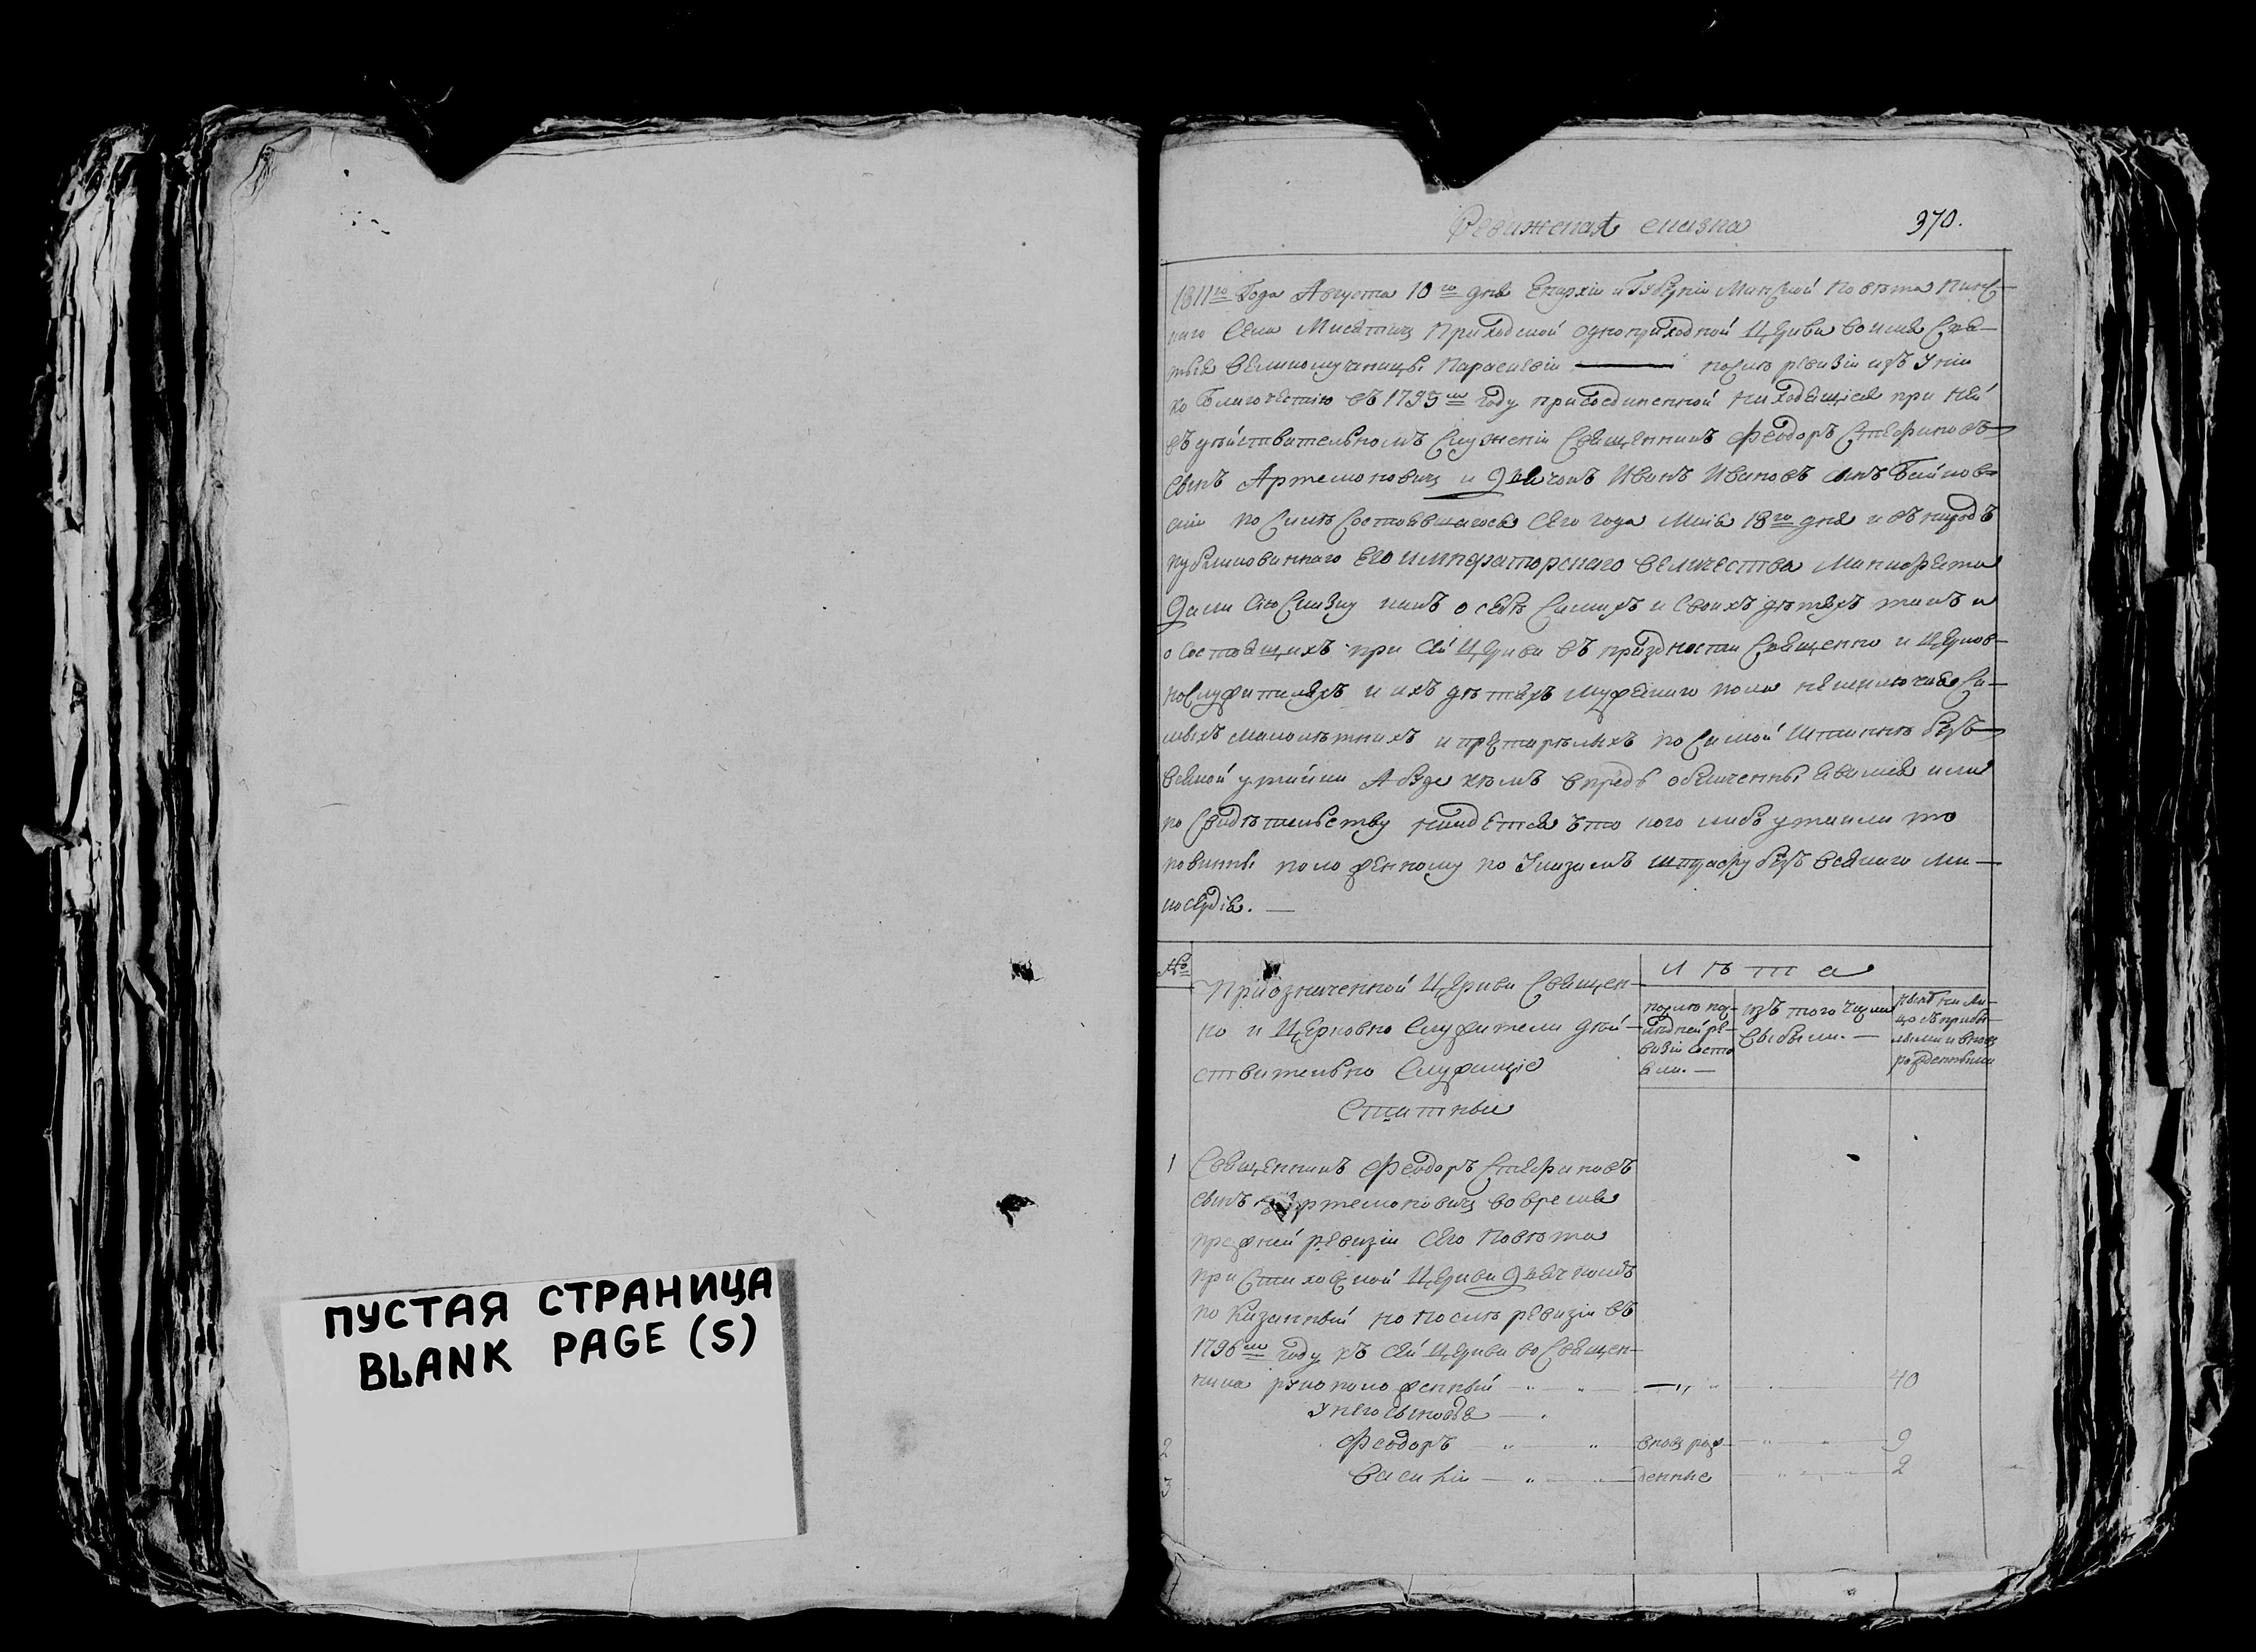 ПУСТАЯ СТРАНИЦА
BLANK PAGE (S)
Ревижская сказка 370.
1811го Года Августа 10го дня Епархіи и Губерніи Минской Повета Пинс-
каго Села Мисятич Приходской одноприходной Церкви во имя Свя-
тыя Великомученицы Параскевіи после ревизіи изъ Уніи
ко Благочестию въ 1795м году присоединенной находящіеся при ней
въ действительномъ служеніи Священникъ Феодоръ Стефановъ
сынъ Артемоновичъ и Дьячокъ Иванъ Ивановъ сынъ
по силе состоявшагося сего года Маія 18го дня и въ народъ
публикованнаго Его Императорскаго Величества Манифеста
Дали сию сказку какъ о себе самихъ и своихъ детяхъ такъ и
о состоящихъ при сей Церкви въ праздности Священно и Церков-
нослужителяхъ и ихъ детяхъ мужеска пола не исключая са-
мыхъ малолетнихъ и престарелыхъ по самой истинне безъ
всякой утайки А буде кемъ впредь обличенны явимся или
по свидетельству найдется что кого либо утаили то
повинны положенному по Указамъ штрафу безъ всякаго ми-
лосердія.
№
При означенной Церкви Священ-
но и Церковно Служители дей-
ствительно Служащіе
Статные
лета
по последней ре-
визіи состо
яли.
изъ того числа
выбыли.
ныне на ли-
цо съ прибы-
лыми и вновь
рожденными
1 Священникъ Феодоръ Стефановъ
сынъ Артемоновичъ во время
прежней ревизіи сего Повета
при Стаховской Церкви Дьячкомъ
показанный но после ревизіи въ
1796м году къ сей Церкви во Священ-
ника рукоположенный 40
У него сыновья
2 Феодоръ вновь рож- 9
3 Василій денные 2